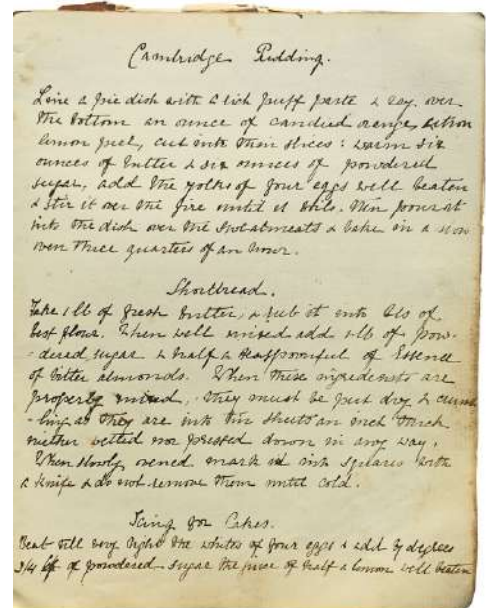 Cambridge Pudding.
Line a pie dish with a rich puff paste & lay over
the bottom an ounce of candied orange, citron
lemon peel, cut into thin slices: warm six
ounces of butter & six ounces of powdered
sugar, add the yolks of four eggs well beaten
& stir it over the fire until it boils. then pour it
into the dish over the sweetmeats & bake in a slow
oven three quarters of an hour.
Shortbread.
Take 1 lb of fresh butter, & rub it into lbs of
best flour. When well mixed add lb of pow-
-dered sugar & half a teaspoonful of Essence
of bitter almonds. When these ingredients are
properly mixed, they must be put dry & crumb
-ling as they are into tin sheets an inch thick
neither wetted nor pressed down in any way.
When slowly ovened mark it into squares with
a knife & do not remove them until cold.
Icing for Cakes.
Beat till very light the whites of four eggs & add by degrees
3/4 of powdered sugar the juice of half a lemon well beaten